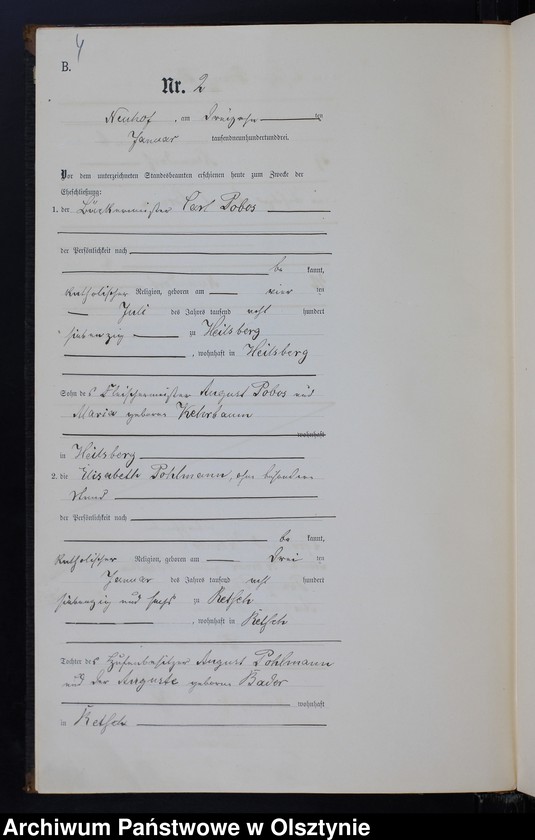 4
B.
Nr. 2
Neuhof, am dreizehnten
Januar tausendneunhundertunddrei.
Vor dem unterzeichneten Standesbeamten erschienen heute zum Zwecke der
Eheschließung:
1. der Bäckermeister Carl Pobos
der Persönlichkeit nach
be kannt,
katholischer Religion, geboren am vier ten
Juli des Jahres tausend acht hundert
siebenzig zu Heilsberg
, wohnhaft in Heilsberg
Sohn des Fleischermeister August Pobos und
Maria geborene
wohnhaft
in Heilsberg
2. die Elisabeth Pohlmann, ohne besonderen
Stand
der Persönlichkeit nach
be kannt,
katholischer Religion, geboren am drei ten
Januar des Jahres tausend acht hundert
siebenzig und sechs zu Retsch
, wohnhaft in Retsch
Tochter des Hufenbesitzer August Pohlmann
und der Auguste geborene Bader
wohnhaft
in Retsch
Archiwum Państwowe w Olsztynie